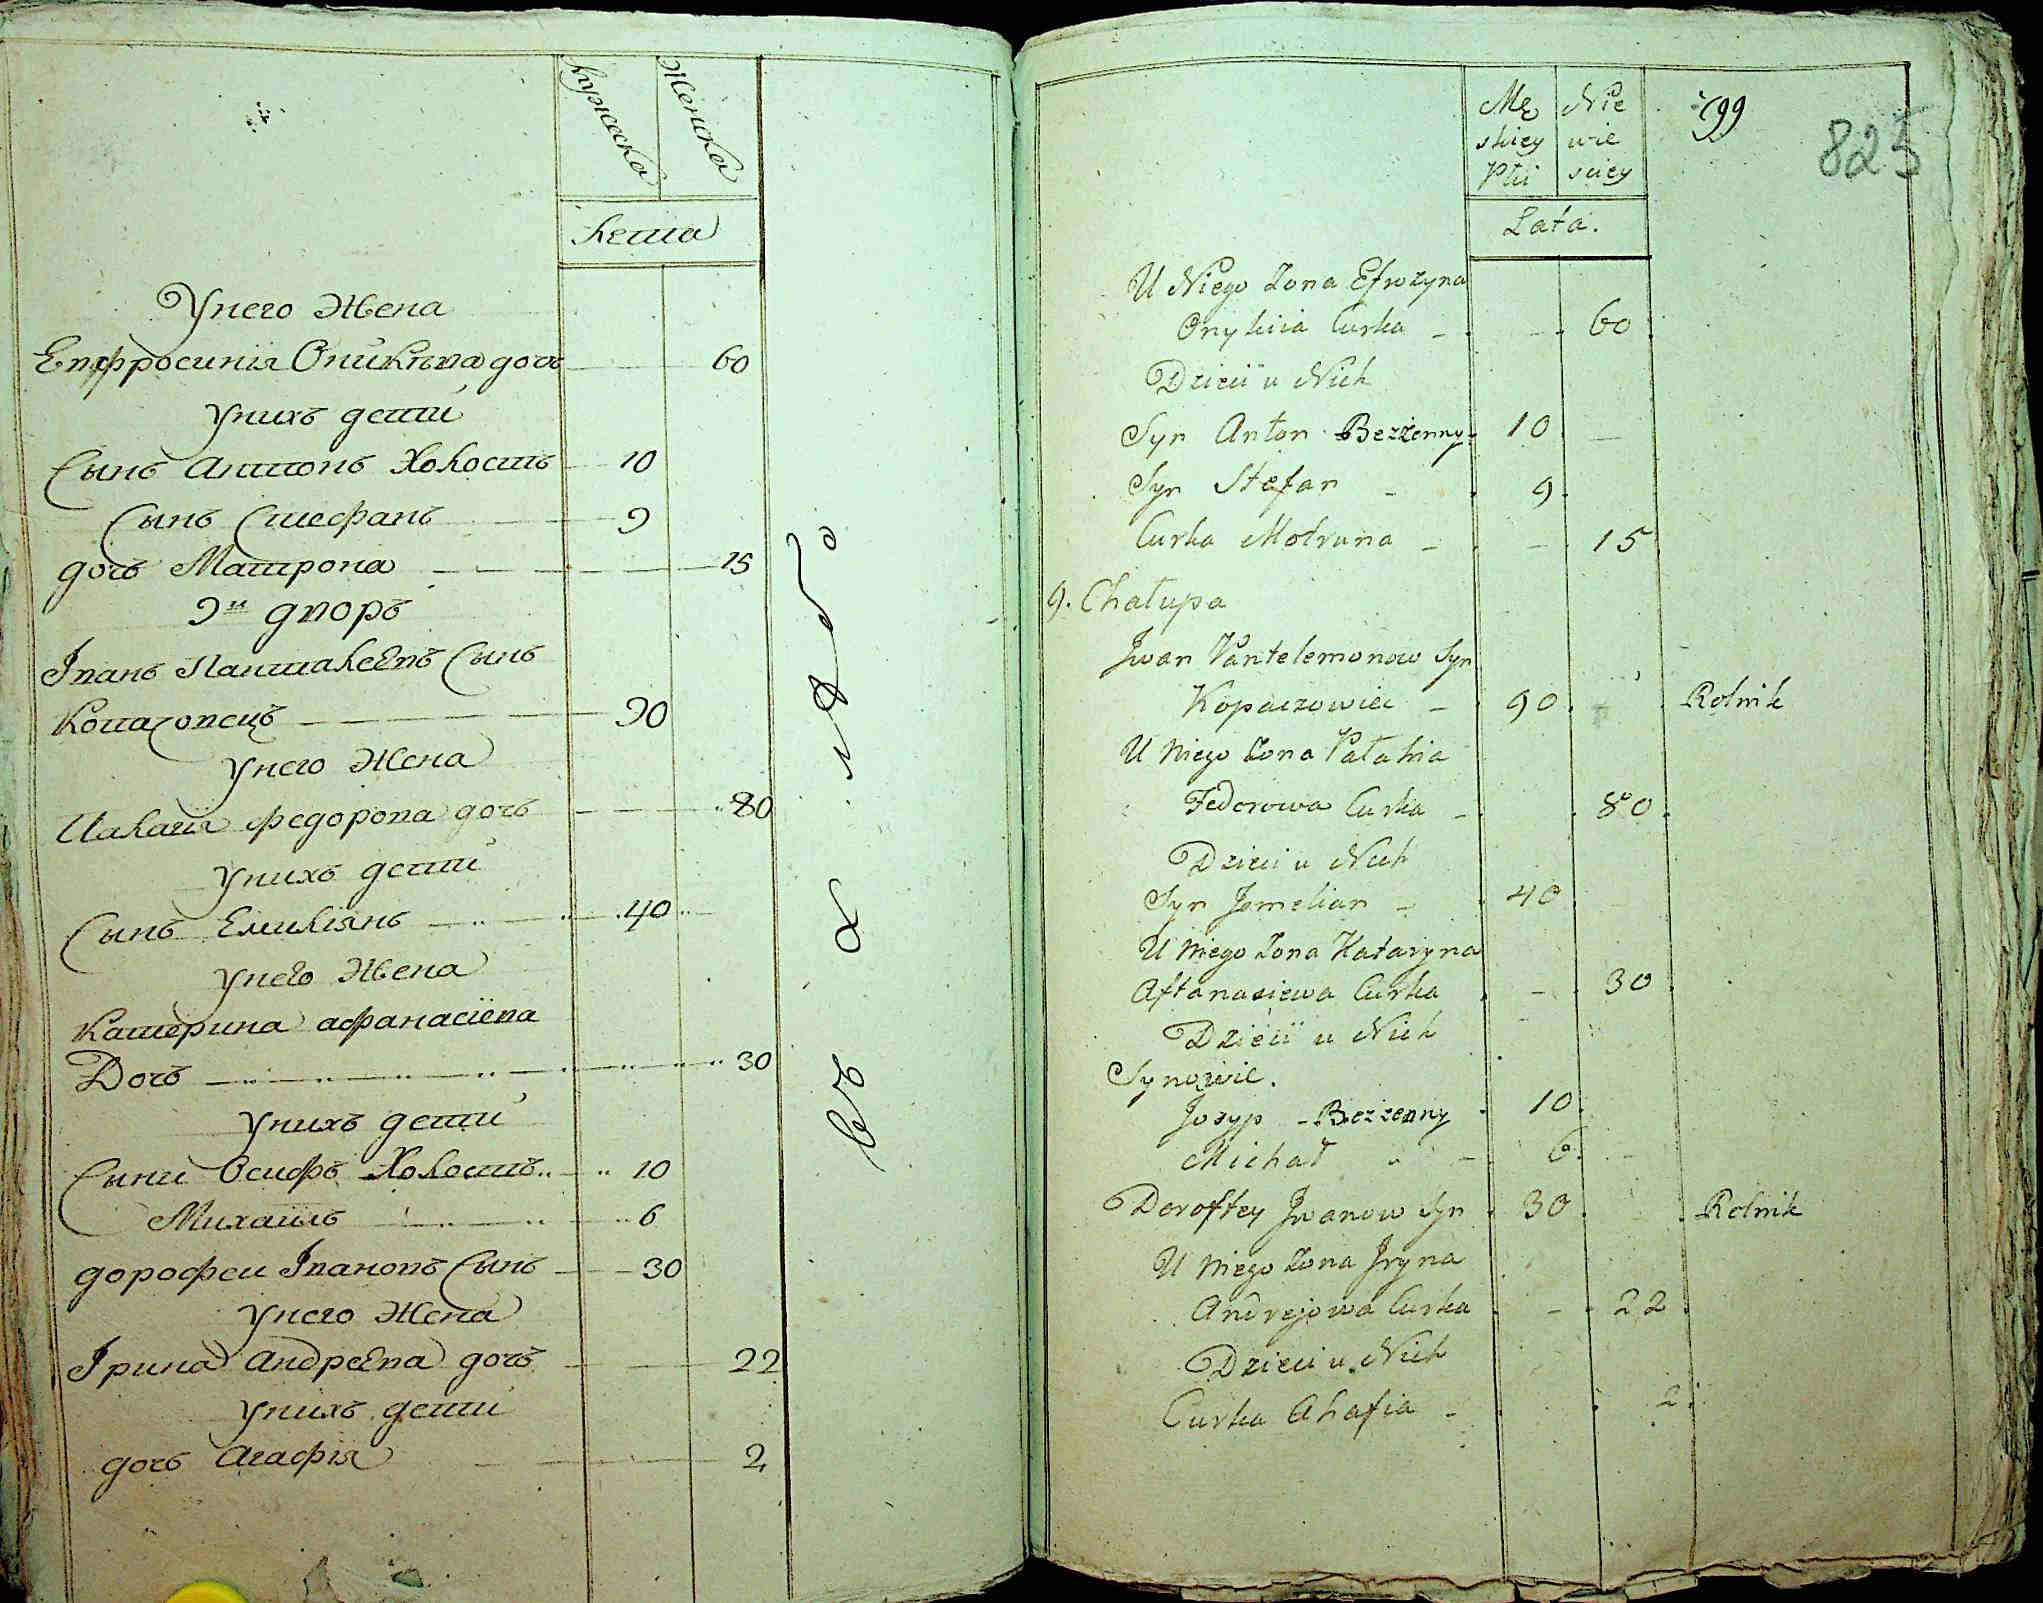 Мужеска
Женска
Лета
У него Жена
Евфросинія Оникѣева дочь 60
У нихъ дети
Сынъ Антонъ Холостъ 10
Сынъ Стефанъ 9
дочь Матрона 15
9й дворъ
Іванъ Пантелеевъ Сынъ
Копачовецъ 90
У него Жена
Палагія федорова дочь 80
У нихъ дети
Сынъ Емиліянъ 40
У него Жена
Катерина афанасіева
Дочь 30
У нихъ дети
Сыни Осифъ Холостъ 10
Михаилъ 6
дорофеи Івановъ Сынъ 30
У него Жена
Ірина Андреева дочь 22
У нихъ дети
дочь Агафія 2
Mę Nie
skiey wie
Płci sciey
Lata.
99
825
U Niego Zona Efrozyna
Onykiia Curka 60
Dzieci u Nich
Syn Anton Bezżenny 10
Syn Stefan 9
Curka Motruna 15
9. Chałupa
Jwan Pantelemonow Syn
Kopaczowiec 90 Rolnik
U Niego Zona Pałahia
Fedorowa Curka 80
Dzieci u Nich
Syn Jemelian 40
U Niego Zona Kataryna
Aftanasiewa Curka 30
Dzieci u Nich
Synowie.
Josyp Bezżenny 10
Michał 6
Doroftey Jwanow Syn 30 Rolnik
U Niego Zona Jryna
Andrejowa Curka 22
Dzieci u Nich
Curka Ahafia 2